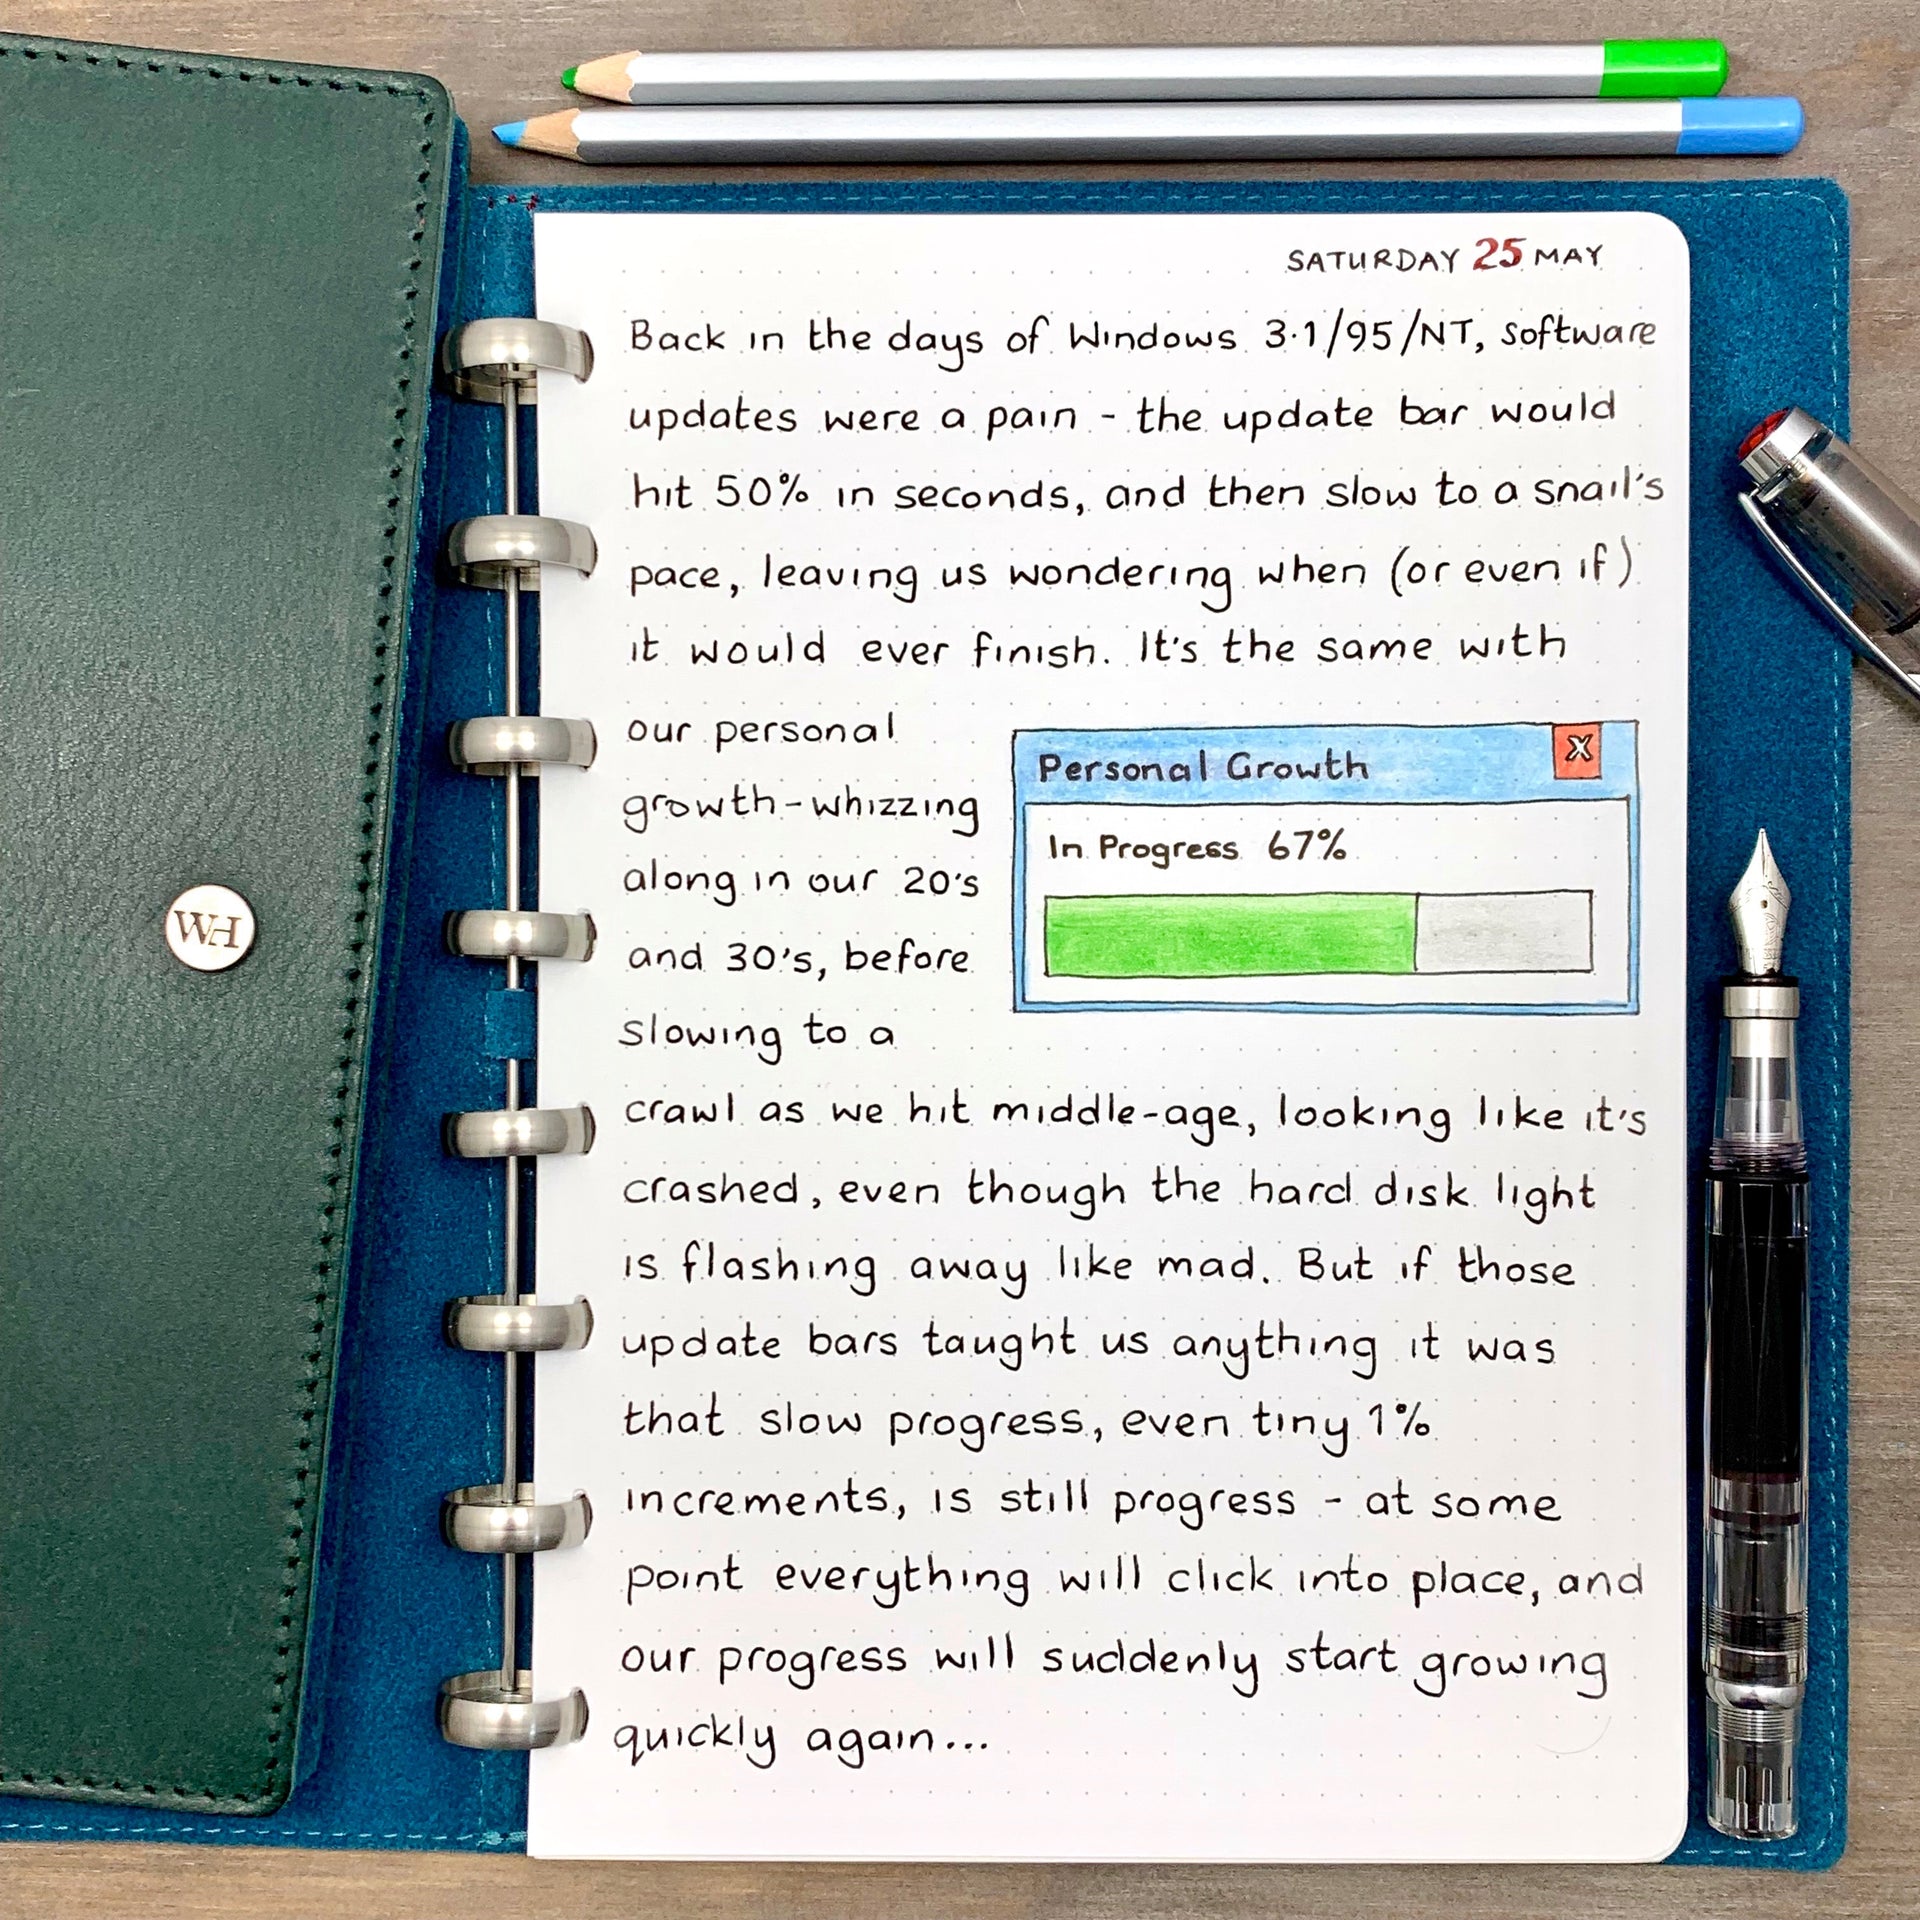 WH
SATURDAY 25 MAY
Back in the days of Windows 3·1/95/NT, software
updates were a pain - the update bar would
hit 50% in seconds, and then slow to a snail's
pace, leaving us wondering when (or even if)
it would ever finish. It's the same with
our personal
growth-whizzing
along in our 20's
and 30's, before
slowing to a
Personal Growth X
In Progress 67%
crawl as we hit middle-age, looking like it's
crashed, even though the hard disk light
is flashing away like mad. But if those
update bars taught us anything it was
that slow progress, even tiny 1%
increments, is still progress - at some
point everything will click into place, and
our progress will suddenly start growing
quickly again...